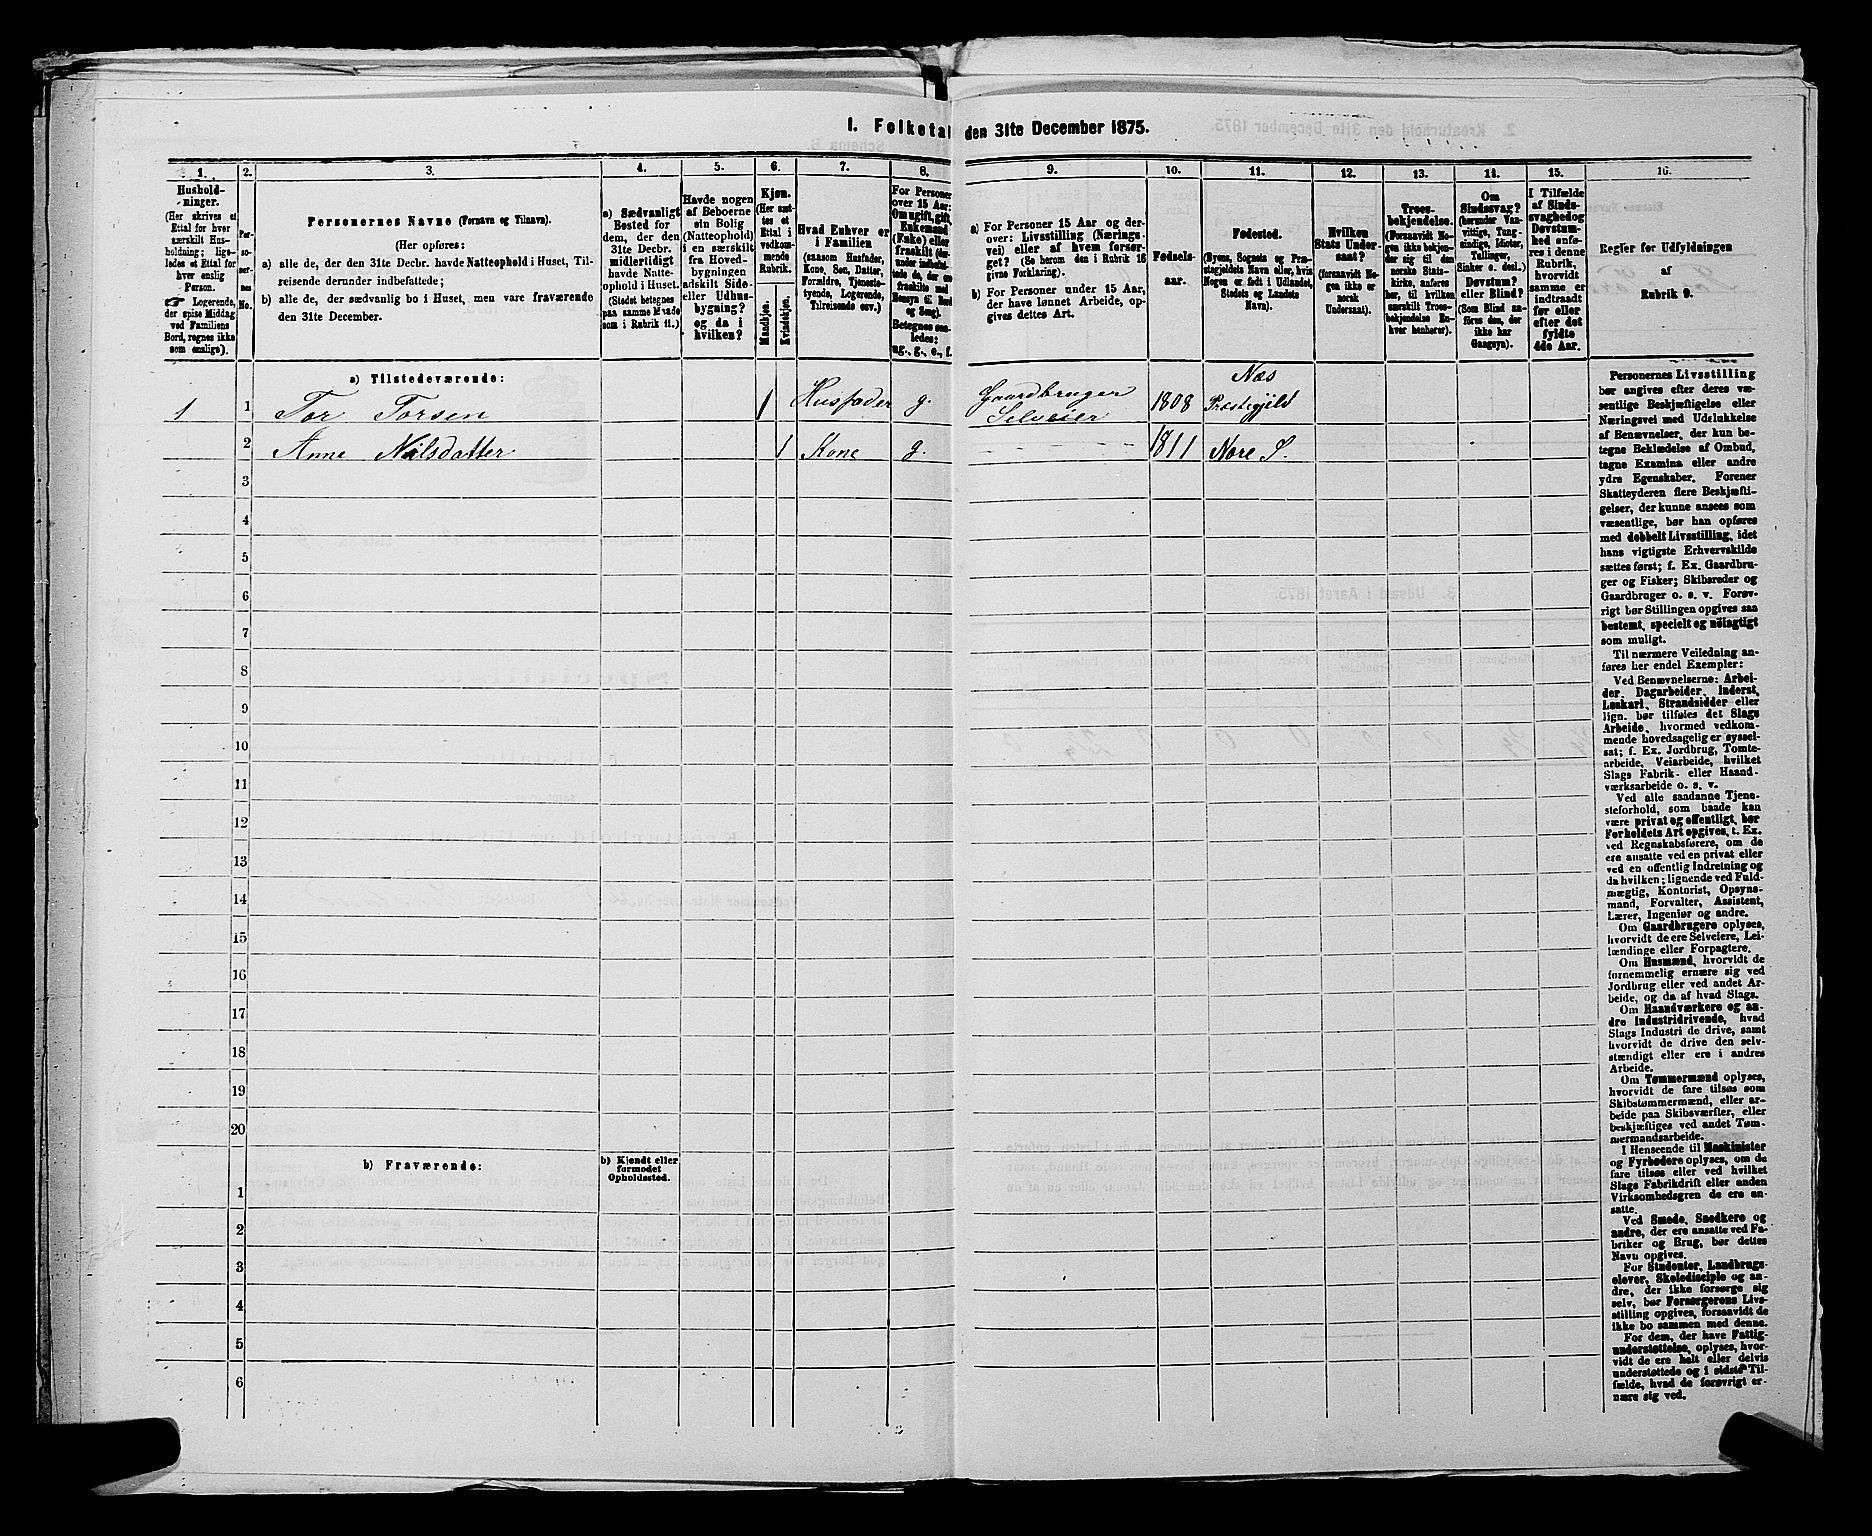 1. Folketal den 31te December 1875.
1. 2. 3. 4. 5. 6. 7. 8. 9. 10. 11. 12. 13. 14. 15. 16.
Hushold-
ninger.
(Her skrives et
Ettal for hver
særskilt Hus-
holdning; lige-
ledes et Ettal for
hver enslig
Person.
☞ Logerende,
der spise Middag
ved Familiens
Bord, regnes ikke
som enslige).
Per-
so-
ner-
nes
No.
Personernes Navne (Fornavn og Tilnavn).
(Her opføres:
a) alle de, der den 31te Decbr. havde Natteophold i Huset, Til-
reisende derunder indbefattede;
b) alle de, der sædvanlig bo i Huset, men vare fraværende
den 31te December.
a) Sædvanligt
Bosted for
dem, der den
31te Decbr.
midlertidigt
havde Natte-
ophold i Huset.
(Stedet betegnes
paa samme Maade
som i Rubrik 11.)
Havde nogen
af Beboerne
sin Bolig
(Natteophold)
i en særskilt
fra Hoved-
bygningen
adskilt Side-
eller Udhus-
bygning?
og da i
hvilken?
Kjøn.
(Her sæt-
tes et
Ettal i
vedkom-
mende
Rubrik.
Mandkjøn.
Kvindekjøn.
Hvad Enhver er
i Familien
(saasom Husfader,
Kone, Søn, Datter,
Forældre, Tjeneste-
tyende, Logerende,
Tilreisende osv.)
For Personer
over 15 Aar:
Om ugift, gift,
Enkemand
(Enke) eller
fraskilt (der-
under indbefat-
tede de, der ere
fraskilte med
Hensyn til Bord
og Seng).
Betegnes saa-
ledes:
ug., g., e., f.
a) For Personer 15 Aar og der-
over: Livsstilling (Nærings-
vei) eller af hvem forsør-
get? (Se herom den i Rubrik 16
givne Forklaring).
b) For Personer under 15 Aar,
der have lønnet Arbeide, op-
gives dettes Art.
Fødsels-
aar.
Fødested.
(Byens, Sognets og Præ-
stegjeldets Navn eller, hvis
Nogen er født i Udlandet,
Stedets og Landets
Navn).
Hvilken
Stats Under-
saat?
(forsaavidt No-
gen ikke er
norsk
Undersaat).
Troes-
bekjendelse.
(Forsaavidt No-
gen ikke bekjen-
der sig til den
norske Stats-
kirke, anføres
her, til hvilken
særskilt Troes-
bekjendelse En-
hver henhører).
Om
Sindssvag?
(herunder Van-
vittige, Tung-
sindige, Idioter,
Tullinger,
Sinker o. desl.)
Døvstum?
eller Blind?
(Som Blind an-
føres den, der
ikke har
Gangsyn).
I Tilfælde
af Sinds-
svaghed og
Døvstum-
hed anfø-
res i denne
Rubrik,
hvorvidt
samme er
indtraadt
før eller
efter det
fyldte
4de Aar.
Regler for Udfyldningen
af
Rubrik 9.
a) Tilstedeværende:
1 1 Tor Torsen 1 Husfader g. Gaardbruger Selveier 1808 Næs Præstegjeld
2 Anne Nilsdatter 1 Kone g. – – – 1811 Nore S.
3
4
5
6
7
8
9
10
11
12
13
14
15
16
17
18
19
20
b) Fraværende:
b) Kjendt eller
formodet
Opholdssted.
1
2
3
4
5
6
Personernes Livsstilling
bør angives efter deres væ-
sentlige Beskjæftigelse eller
Næringsvei med Udelukkelse
af Benævnelser, der kun be-
tegne Beklædelse af Ombud,
tagne Examina eller andre
ydre Egenskaber. Forener
Skatteyderen flere Beskjæfti-
gelser, der kunne ansees som
væsentlige, bør han opføres
med dobbelt Livsstilling, idet
hans vigtigste Erhvervskilde
sættes først; f. Ex. Gaardbru-
ger og Fisker; Skibsreder og
Gaardbruger o. s. v. Forøv-
rigt bør Stillingen opgives saa
bestemt, specielt og nøiagtigt
som muligt.
Til nærmere Veiledning an-
føres her endel Exempler:
Ved Benævnelserne: Arbei-
der, Dagarbeider, Inderst,
Løskarl, Strandsidder eller
lign. bør tilføies det Slags
Arbeide, hvormed vedkom-
mende hovedsagelig er syssel-
sat; f. Ex. Jordbrug, Tomte-
arbeide, Veiarbeide, hvilket
Slags Fabrik- eller Haand-
værksarbeide o. s. v.
Ved alle saadanne Tjene-
steforhold, som baade kan
være privat og offentligt, bør
Forholdets Art opgives, t. Ex.
ved Regnskabsførere, om de
ere ansatte ved en privat eller
ved en offentlig Indretning og
da hvilken; lignende ved Fuld-
mægtig, Kontorist, Opsyns-
mand, Forvalter, Assistent,
Lærer, Ingeniør og andre.
Om Gaardbrugere oplyses,
hvorvidt de ere Selveiere, Lei-
lændinge eller Forpagtere.
Om Husmænd, hvorvidt de
fornemmelig ernære sig ved
Jordbrug eller ved andet Ar-
beide, og da af hvad Slags.
Om Haandværkere og an-
dre Industridrivende, hvad
Slags Industri de drive, samt
hvorvidt de drive den selv-
stændigt eller ere i andres
Arbeide.
Om Tømmermænd oplyses,
hvorvidt de fare tilsøs som
Skibstømmermænd, eller ar-
beide paa Skibsværfter, eller
beskjæftiges ved andet Tøm-
mermandsarbeide.
I Henseende til Maskinister
og Fyrbødere oplyses, om de
fare tilsøs eller ved hvilket
Slags Fabrikdrift eller anden
Virksomhedsgren de ere an-
satte.
Ved Smede, Snedkere og
andre, der ere ansatte ved Fa-
briker og Brug, bør dettes
Navn opgives.
For Studenter, Landbrugs-
elever, Skoledisciple og an-
dre, der ikke forsørge sig
selv, bør Forsørgerens Livs-
stilling opgives, forsaavidt de
ikke bo sammen med denne.
For dem, der have Fattig-
understøttelse, oplyses, hvor-
vidt de ere helt eller delvis
understøttede og i sidste Til-
fælde, hvad de forøvrigt er-
nære sig ved.